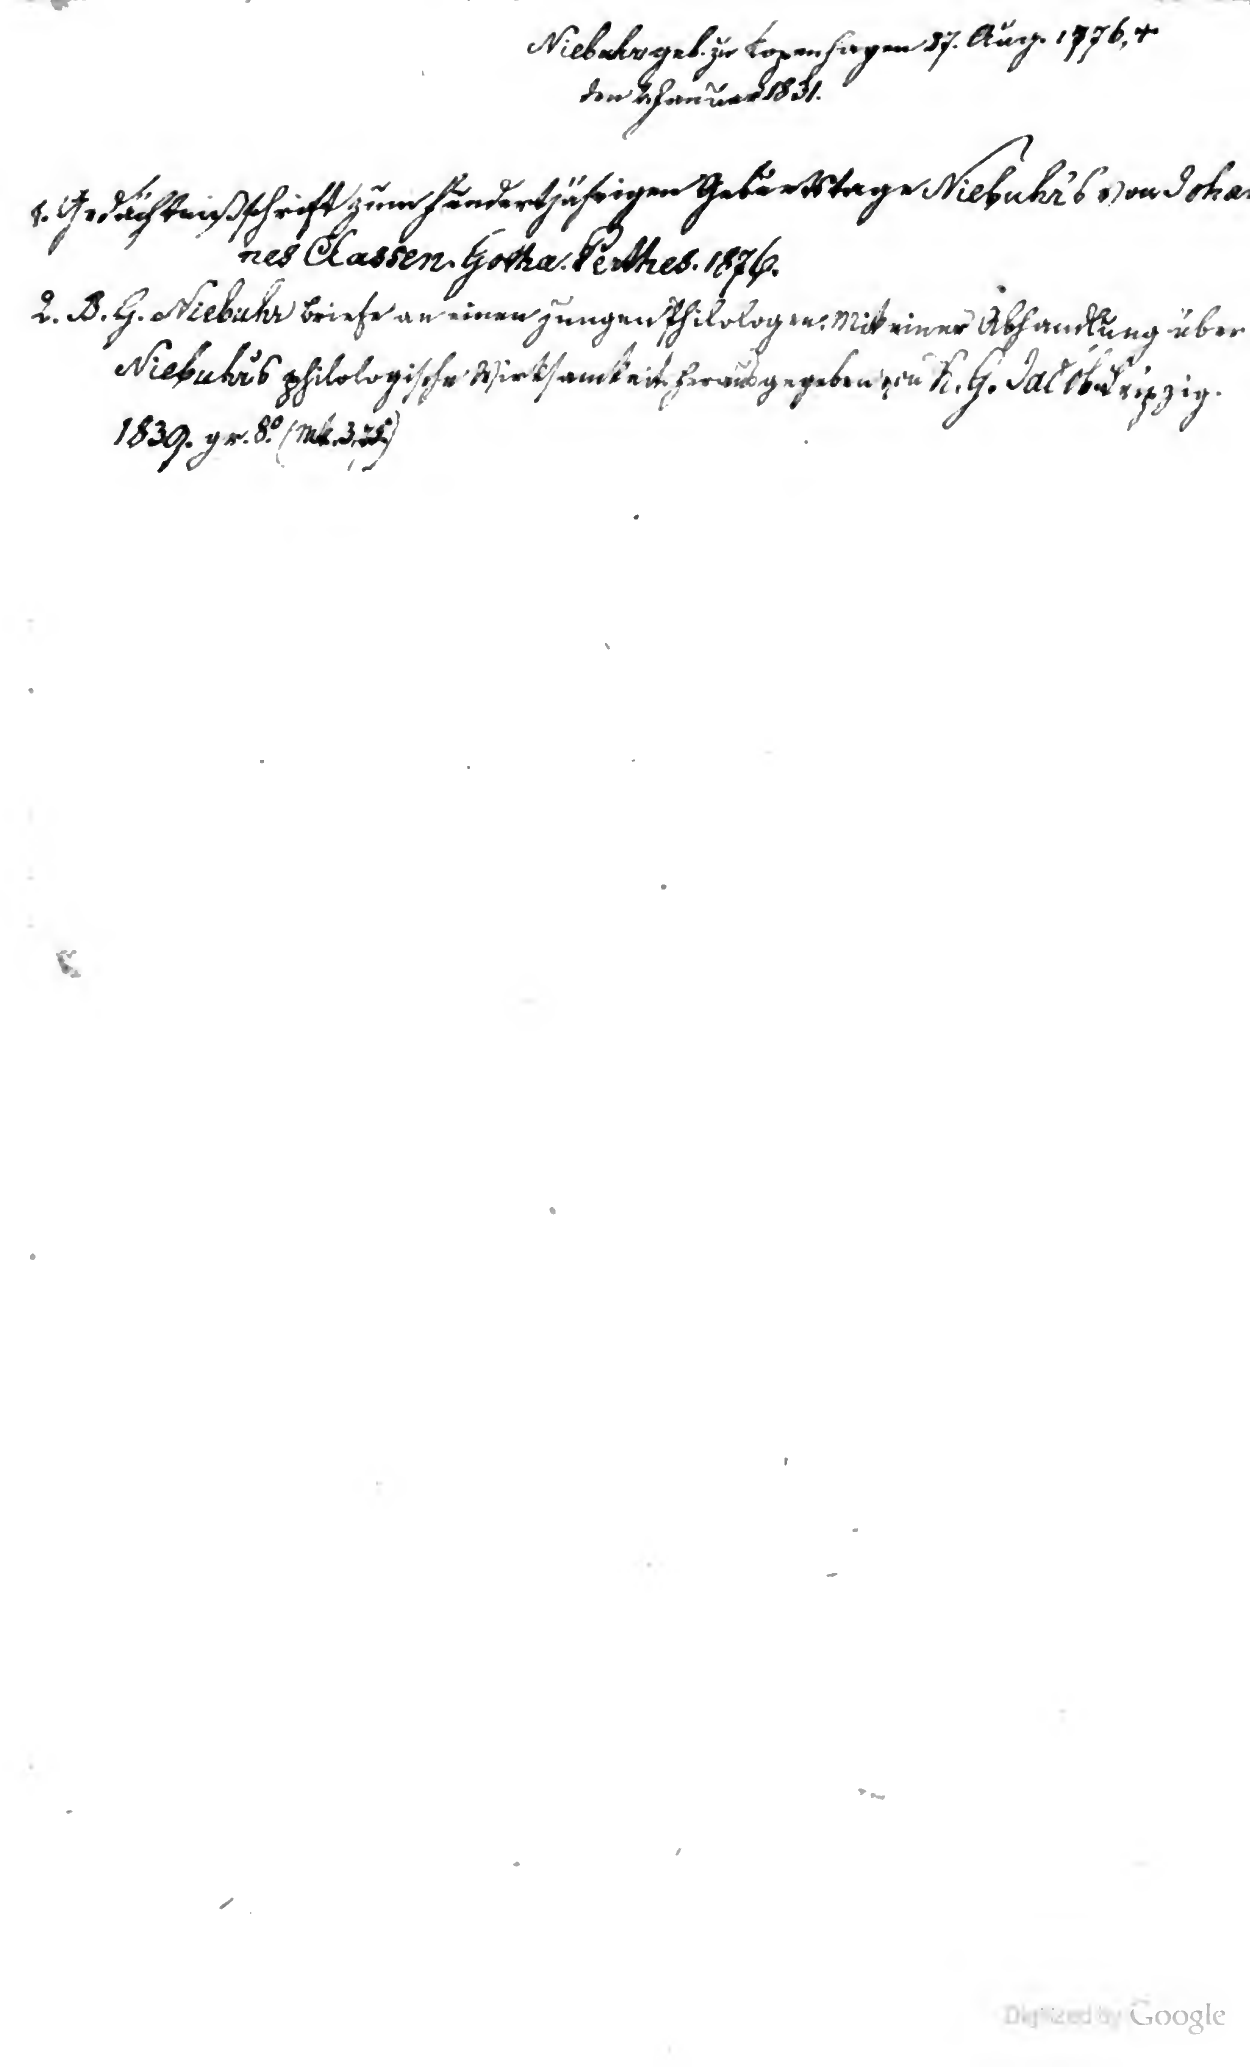 Niebuhr geb. zu Kopenhagen 27. Aug. 1776, +
den 2. Januar 1831.
1. Gedächtnißschrift zum hundertjährigen Geburtstage Niebuhr's von Johan
nes Classen. Gotha. Perthes. 1876.
2. B. G. Niebuhr Briefe an einen jungen Philologen. Mit einer Abhandlung über
Niebuhr's philologische Wirksamkeit herausgegeben von K. G. Jacob. Leipzig.
1839. gr. 8º. (Mk.
Digitized by Google